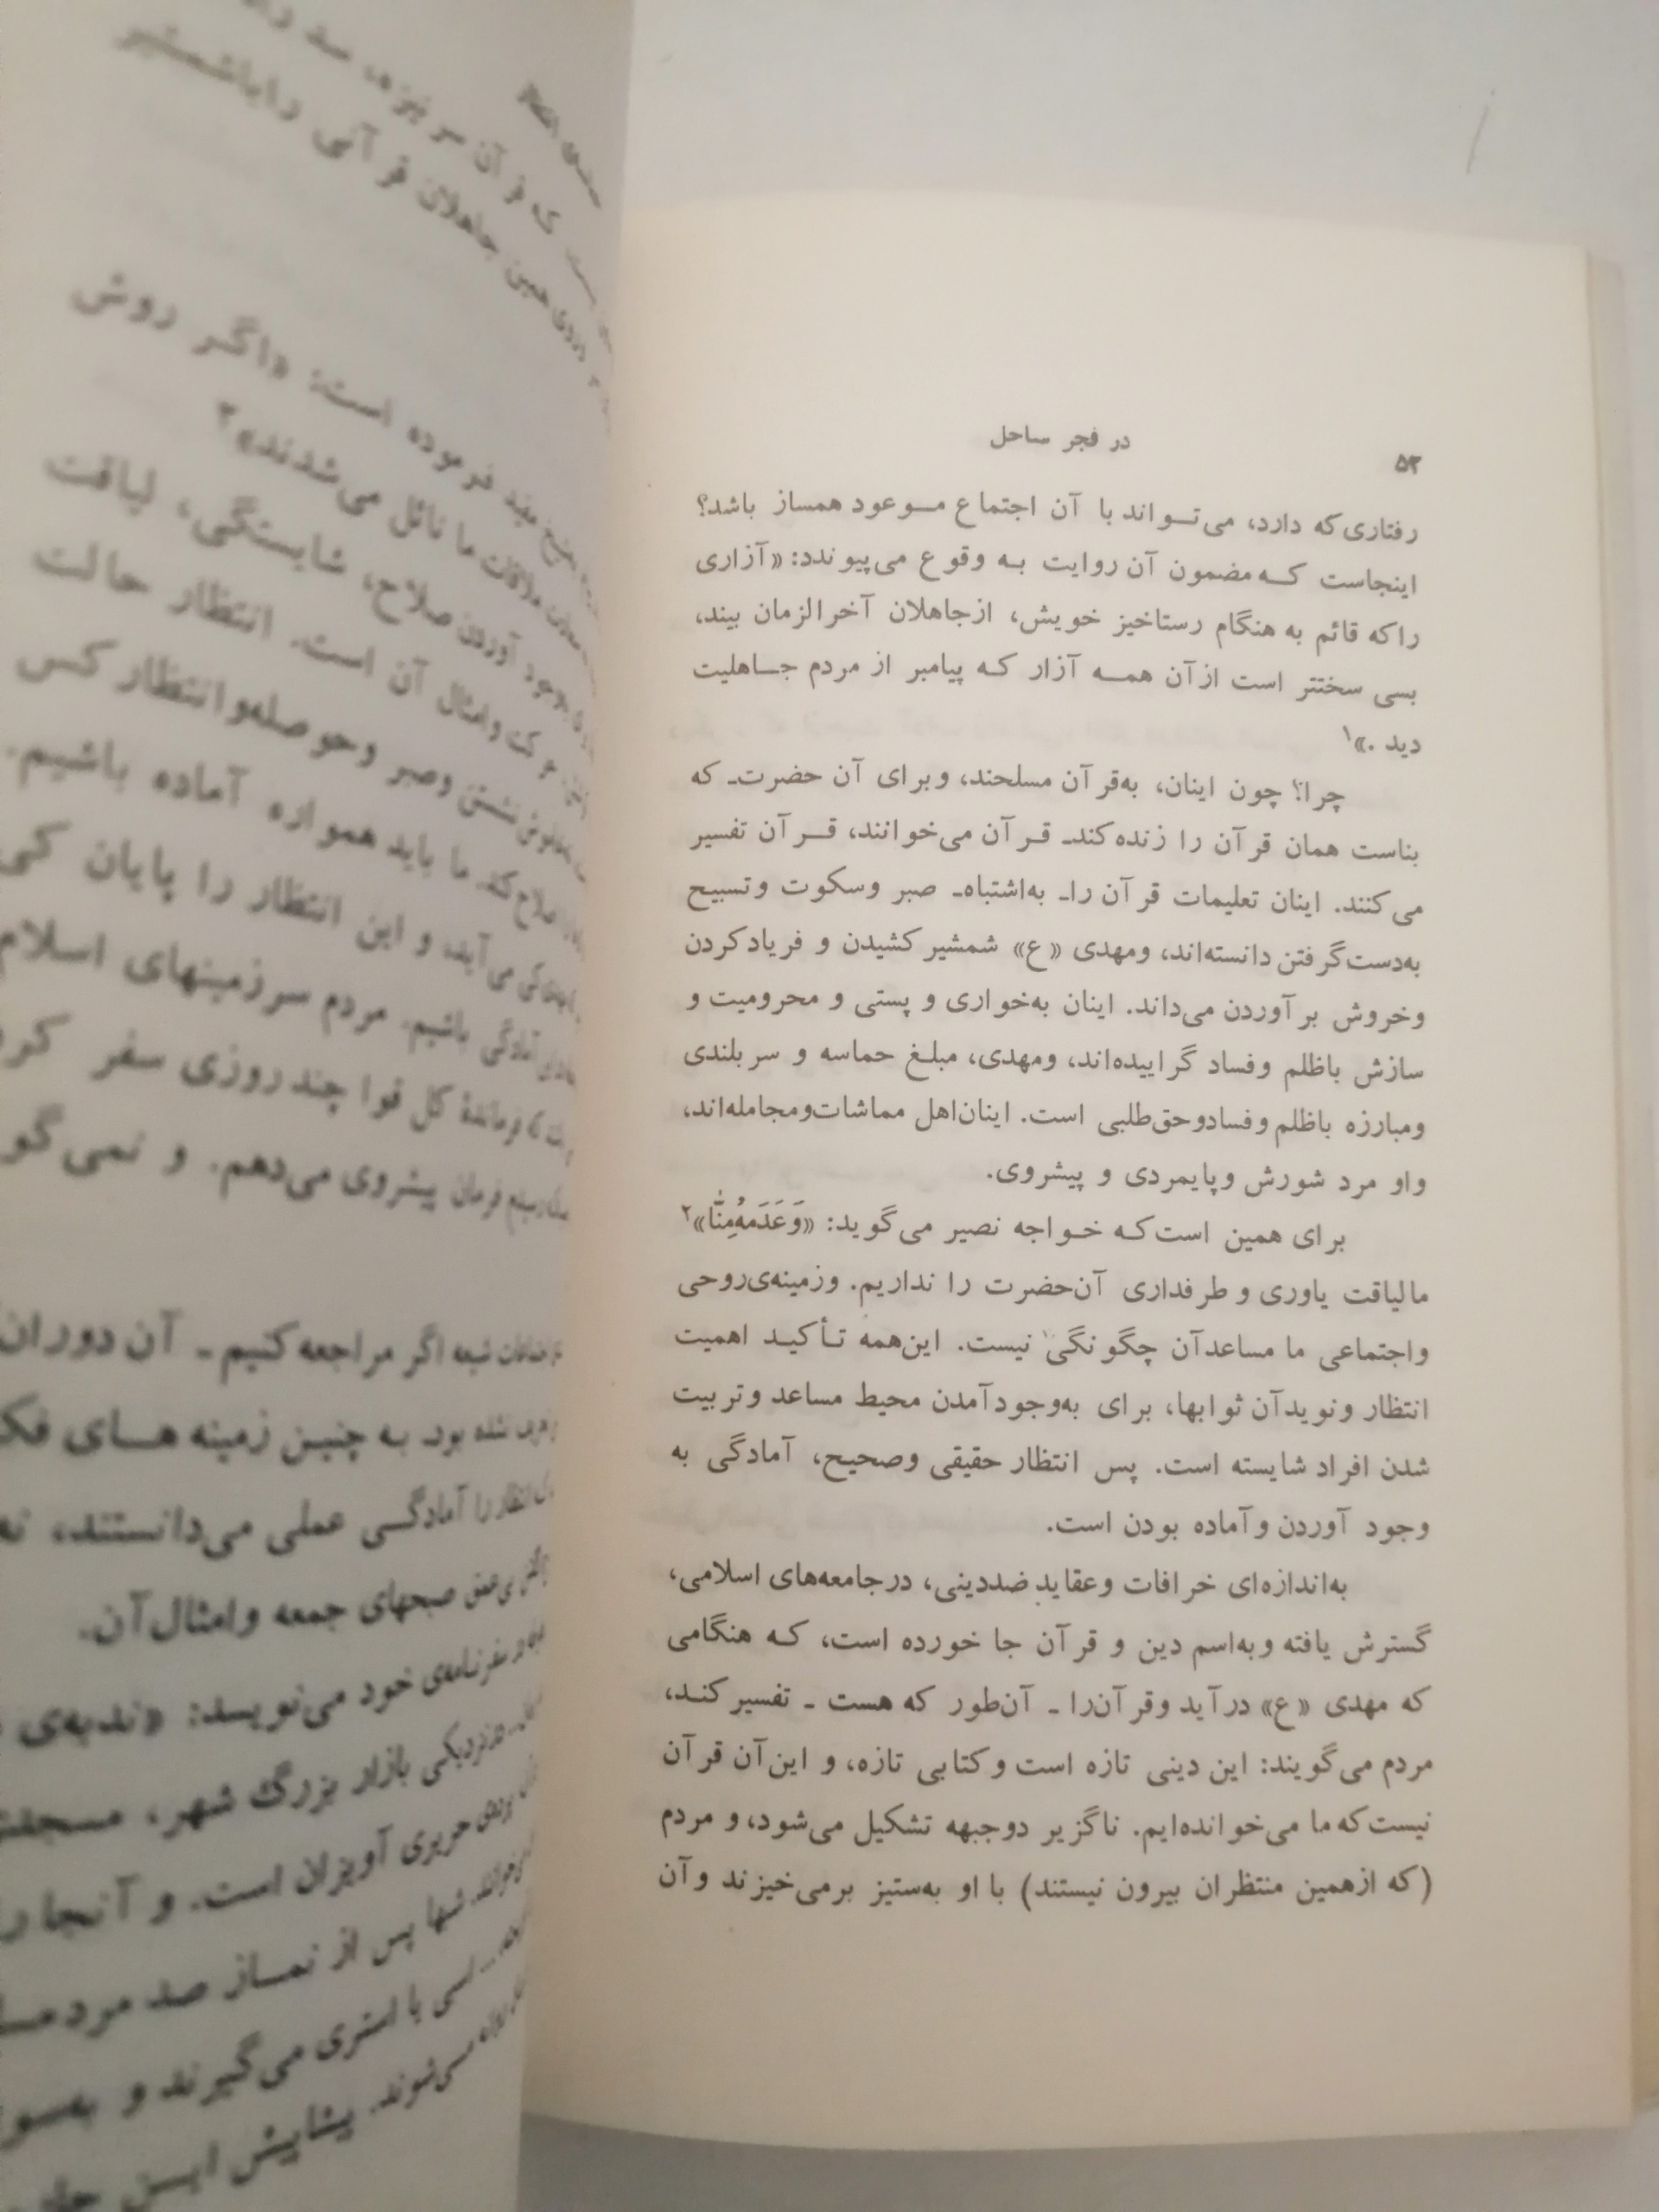 ۵۲
در فجر ساحل
رفتاری‌که دارد، می‌تـواند با آن اجتماع مـوعود همساز باشد؟
اینجاست کـه مضمون آن روایت بـه وقوع می‌پیوندد: «آزاری
راکه قائم به هنگام رستاخیز خویش، ازجاهلان آخرالزمان بیند،
بسی سختتر است ازآن همـه آزار کـه پیامبر از مردم جـاهلیت
دید .»۱
چرا؟ چون اینان، به‌قرآن مسلحند، وبرای آن حضرت‌ـ که
بناست همان قرآن را زنده‌کندـ قـرآن می‌خوانند، قـرآن تفسیر
می‌کنند. اینان تعلیمات قرآن راـ به‌اشتباه‌ـ صبر وسکوت وتسبیح
به‌دست‌گرفتن دانسته‌اند، ومهدی «ع» شمشیرکشیدن و فریادکردن
وخروش برآوردن می‌داند. اینان به‌خواری و پستی و محرومیت و
سازش باظلم وفساد گراییده‌اند، ومهدی، مبلغ حماسه و سربلندی
ومبارزه باظلم وفسادوحق‌طلبی است. اینان‌اهل مماشات‌ومجامله‌اند،
واو مرد شورش وپایمردی و پیشروی.
برای همین است‌کـه خـواجه نصیر می‌گوید: «وَعَدَمُهُ‌مِنّا»۲
مالیاقت یاوری و طرفداری آن‌حضرت را نداریم. وزمینه‌ی‌روحی
واجتماعی ما مساعدآن چگونگی نیست. این‌همه تـأکیـد اهمیت
انتظار ونویدآن ثوابها، برای به‌وجودآمدن محیط مساعد وتربیت
شدن افراد شایسته است. پس انتظار حقیقی وصحیح، آمادگی به
وجود آوردن وآماده بودن است.
به‌اندازه‌ای خرافات وعقاید ضددینی، درجامعه‌های اسلامی،
گسترش یافته وبه‌اسم دین و قرآن جا خورده است، کـه هنگامی
که مهدی «ع» درآید وقرآن‌را ـ آن‌طور که هست ـ تفسیرکنـد،
مردم می‌گویند: این دینی تازه است وکتابی تازه، و این‌آن قرآن
نیست‌که ما می‌خوانده‌ایم. ناگزیر دوجبهه تشکیل می‌شود، و مردم
(که ازهمین منتظران بیرون نیستند) با او به‌ستیز برمی‌خیزند وآن
که قرآن سر نیزه، سد
همین جاهلان قرآنی راباشمشیر
مفید فرموده است: «اگر روش
ملاقات ما نائل می‌شدند»۳
آوردن صلاح، شایستگی، لیاقت
وامثال آن است. انتظار حالت
نشستن وصبر وحوصله‌وانتظارکس
ما باید همواره آماده باشیم.
می‌آید، و این انتظار را پایان کی
آمادگی باشیم. مردم سرزمینهای اسلام
که فرمانده‌ٔ کل قوا چندروزی سفر
فرمان پیشروی می‌دهم. و نمی‌گو
شیعه اگر مراجعه‌کنیم ـ آن دوران
نشده بودـ به چنین زمینه هـای فک
انتظار را آمادگـی عملی می‌دانستند، نه
صبحهای جمعه وامثال‌آن.
سفرنامه‌ی خود می‌نویسد: «ندبه‌ی
نزدیکی بازار بزرگ شهر، مسجد
حریری آویزان است. و آنجا را
شبها پس از نمـاز صد مرد
با استری می‌گیرند و به‌سو
می‌شوند. پیشاپیش ایـن